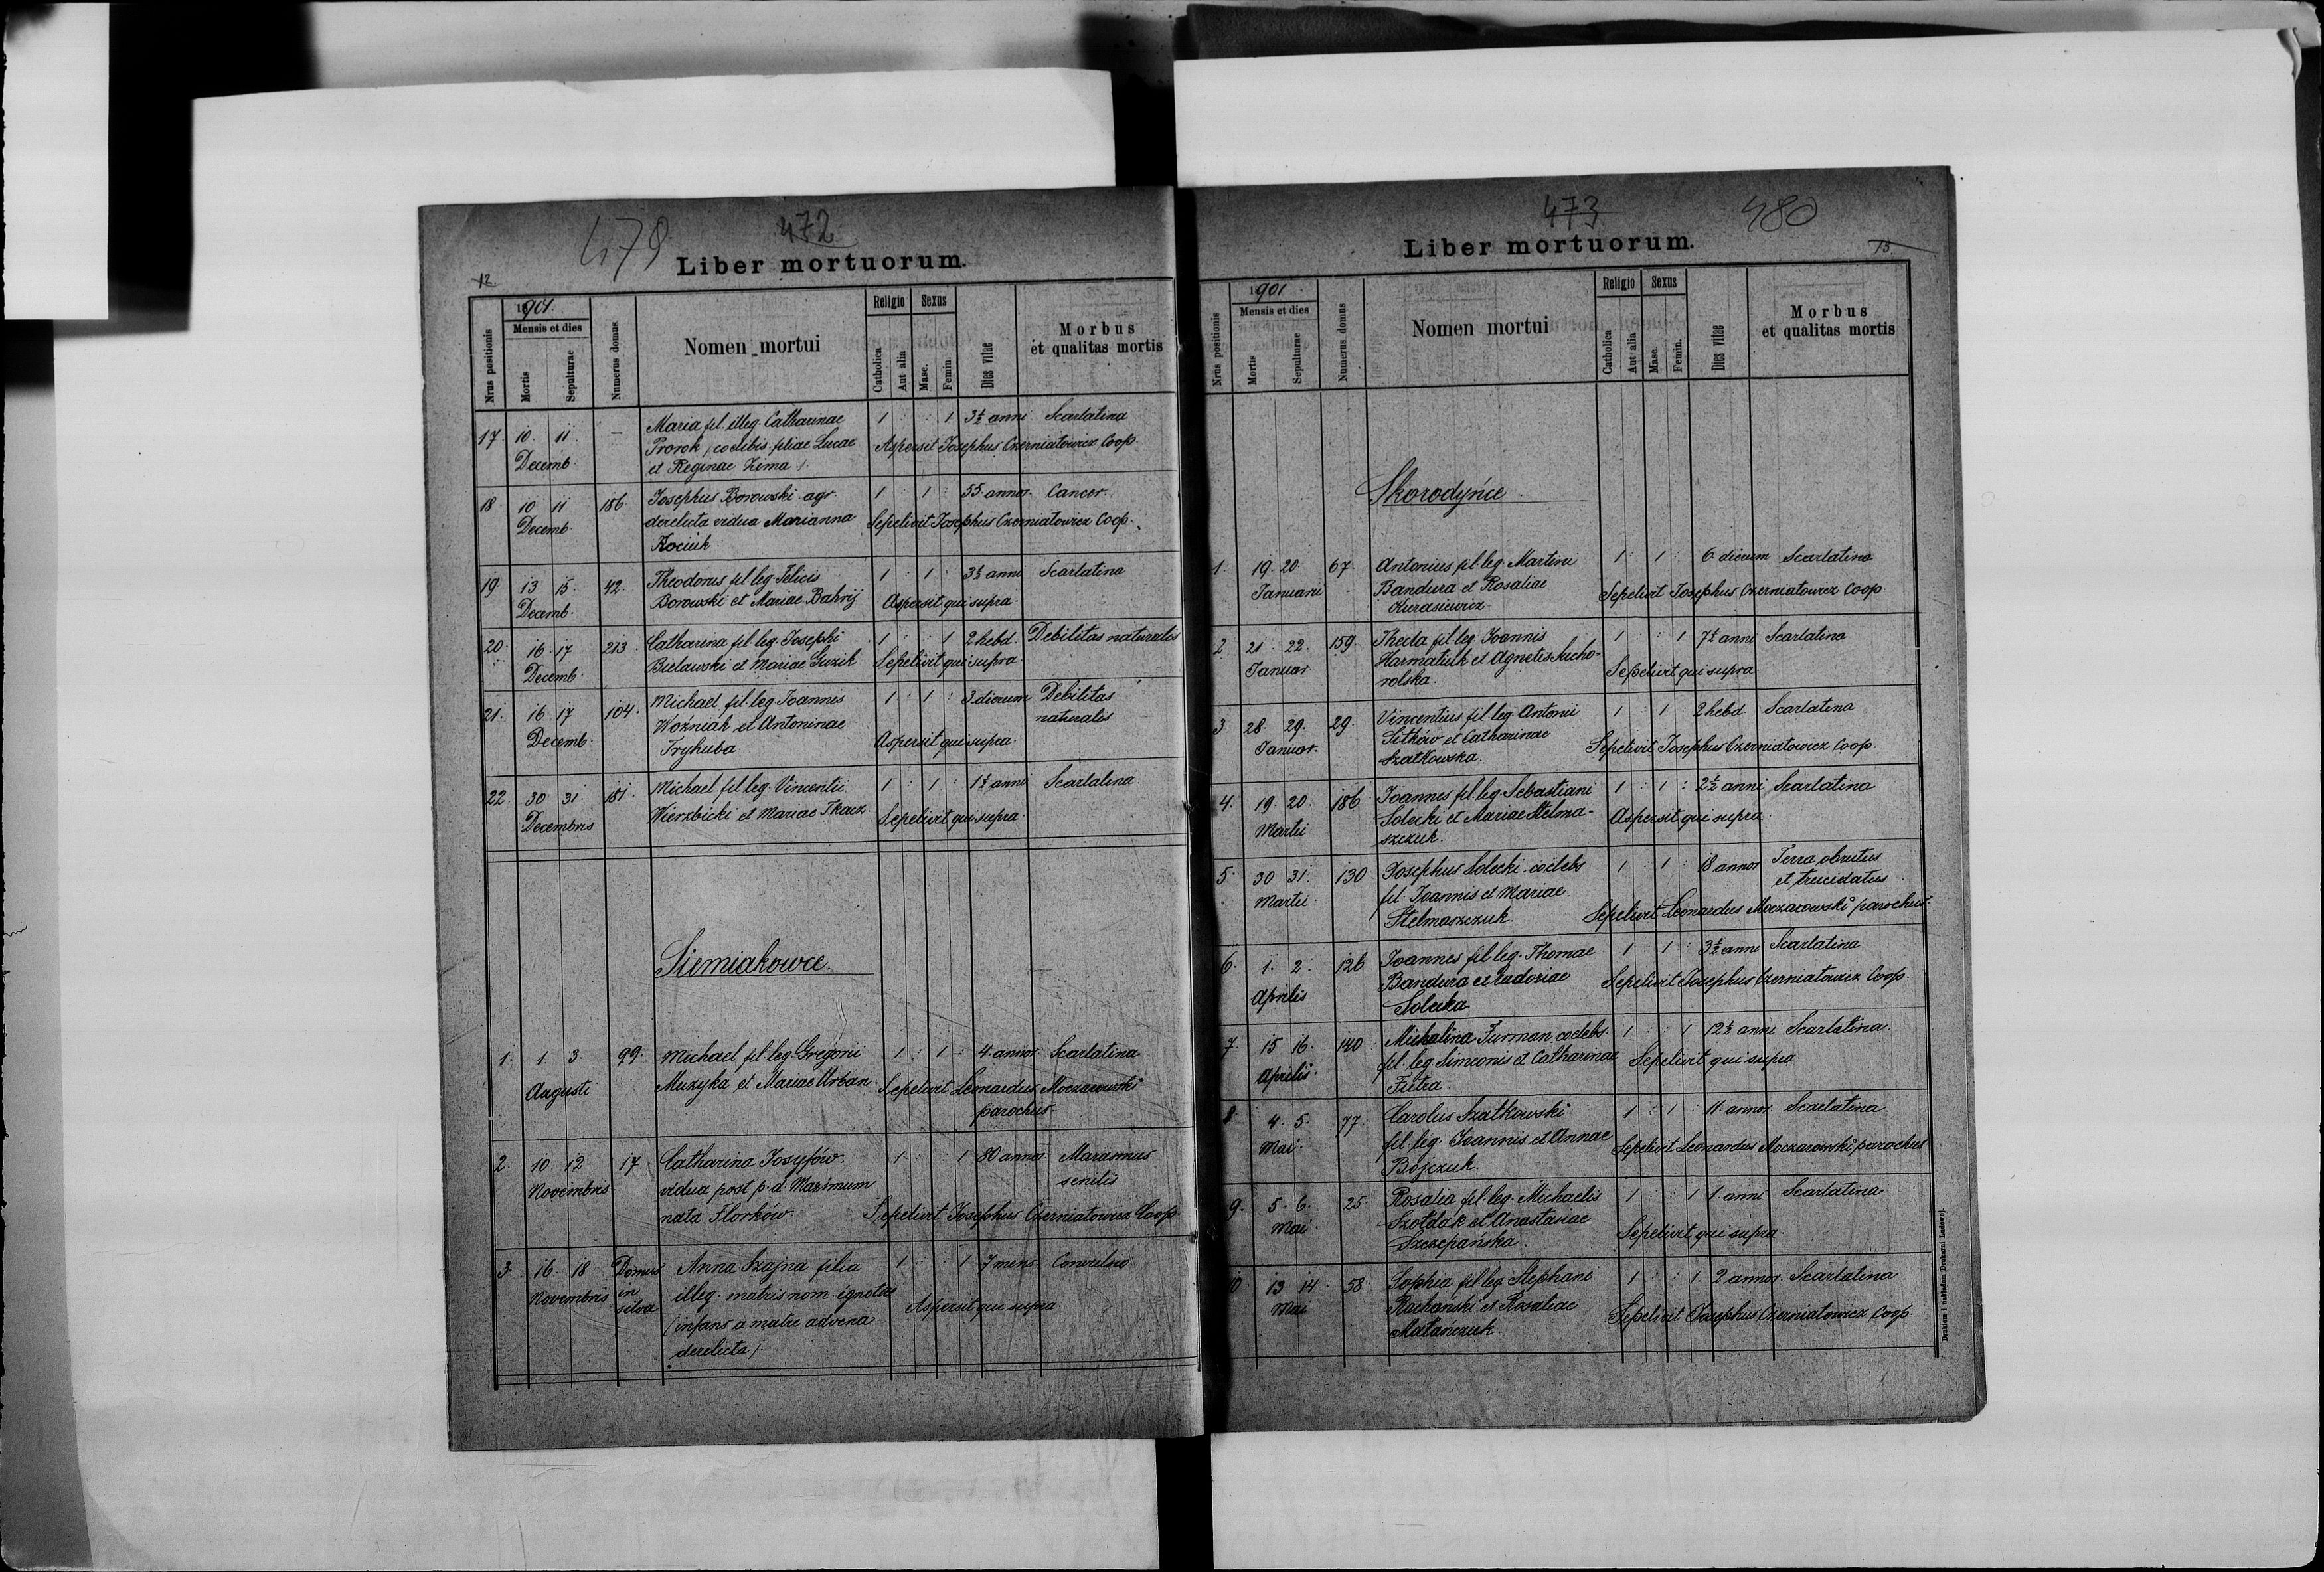 479 472
Liber mortuorum.
12.
1901.
Mensis et dies
Nrus positionis
Mortis
Sepulturae
Numerus domus
Nomen mortui
Religio
Sexus
Catholica
Aut alia
Masc.
Femin.
Dies vitae
Morbus
et qualitas mortis
17 10. 11. — Maria fil. illeg. Catharinae 1 1 3½ anni Scarlatina
Decemb. Prorok, coelibis filiae Lucae Aspersit Josephus Czerniatowicz Coop.
et Reginae Zima /.
18 10 11 186 Josephus Borowski agr. 1 1 55 annor. Cancer.
Decemb. derelicta vidua Marianna Sepelivit Josephus Czerniatowicz Coop.
Kociuk.
19 13 15. 42. Theodorus fil. leg. Felicis 1 1 3½ anni Scarlatina
Decemb. Borowski et Mariae Bahrij Aspersit qui supra.
20. 16. 17 213 Catharina fil. leg. Josephi 1 1 2 hebd. Debilitas naturalis
Decemb. Bielawski et Mariae Guzik Sepelivit qui supra.
21. 16 17 104. Michael fil. leg. Joannis 1 1 3 dierum Debilitas
Decemb. Woźniak et Antoninae naturalis
Tryhuba. Aspersit qui supra.
22 30 31. 181. Michael fil. leg. Vincentii 1 1 1½ anni Scarlatina
Decembris Wierzbicki et Mariae Tkacz. Sepelivit qui supra.
Siemiakowce.
1. 1. 3. 99. Michael fil. leg. Gregorii 1 1 4. annor. Scarlatina
Augusti Muzyka et Mariae Urban. Sepelivit Leonardus Moczarowski
parochus.
2. 10 12 17 Catharina Josypów 1 1 80 annor. Marasmus
Novembris vidua post p. d. Maximum senilis
nata Florków. Sepelivit Josephus Czerniatowicz Coop.
3. 16. 18 Domus Anna Szajna filia 1 1 7 mens. Convulsio
Novembris in illeg. matris nom. ignotae
silva (infans a matre advena Aspersit qui supra
derelicta /.
473 480
Liber mortuorum.
13.
1901
Mensis et dies
Nrus positionis
Mortis
Sepulturae
Numerus domus
Nomen mortui
Religio
Sexus
Catholica
Aut alia
Masc.
Femin.
Dies vitae
Morbus
et qualitas mortis
Skorodyńce.
1. 19. 20. 67. Antonius fil. leg. Martini 1 1 6 dierum Scarlatina
Januarii Bandura et Rosaliae Sepelivit Josephus Czerniatowicz Coop
Kurasiewicz.
2 21 22. 159. Thecla fil. leg. Joannis 1 1 7½ anni Scarlatina
Januar Harmatiuk et Agnetis Sucho-
rolska. Sepelivit qui supra
3 28. 29. 29. Vincentius fil. leg. Antonii 1 1 2 hebd. Scarlatina
Januar. Sitkow et Catharinae Sepelivit Josephus Czerniatowicz Coop.
Szatkowska.
4. 19. 20. 186. Joannes fil. leg. Sebastiani 1 1 2½ anni Scarlatina
Martii Solecki et Mariae Stelma- Aspersit qui supra.
szczuk.
5. 30 31. 130 Josephus Solecki coelebs 1 1 18 annor Terra obrutus
Martii. fil. Joannis et Mariae et trucidatus
Stelmaszczuk. Sepelivit Leonardus Moczarowski parochus.
6. 1. 2. 126 Joannes fil. leg. Thomae 1 1 3½ anni Scarlatina
Aprilis Bandura et Eudoxiae Sepelivit Josephus Czerniatowicz Coop.
Solecka.
7. 15 16. 140. Michalina Furman coelebs 1 1 12½ anni Scarlatina.
Aprilis. fil. leg. Simeonis et Catharinae Sepelivit qui supra
Futra.
8 4. 5. 77. Carolus Szatkowski 1 1 11. annor. Scarlatina.
Mai. fil. leg. Joannis et Annae Sepelivit Leonardus Moczarowski parochus
Bojczuk.
9. 5. 6. 25. Rosalia fil. leg. Michaelis 1 1 1 anni Scarlatina
Mai. Szoldak et Anastasiae Sepelivit qui supra.
Szczepańska.
10 13 14. 58. Sophia fil. leg. Stephani 1 1. 2 annor. Scarlatina
Mai et Rosaliae Sepelivit Josephus Czerniatowicz Coop
Matańczuk.
Drukiem i nakładem Drukarni Ludowej.